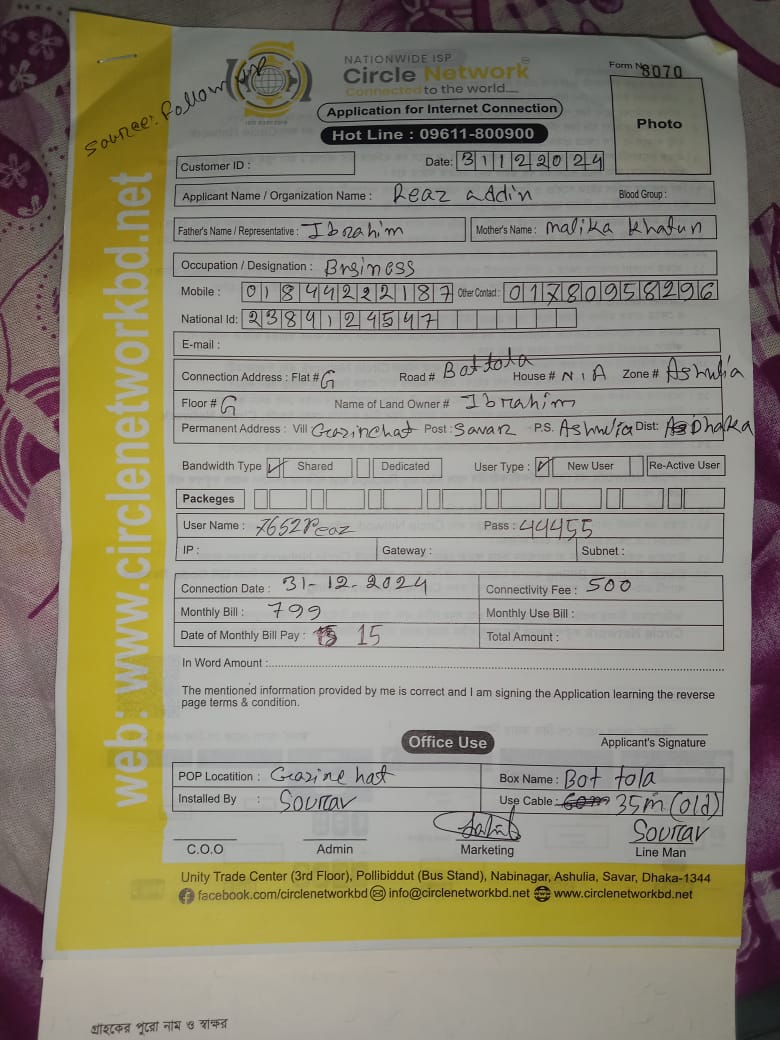 Source: Follow up
NATIONWIDE ISP
Circle Network
Connected to the world....
Form No 8070
Application for Internet Connection
Hot Line : 09611-800900
Photo
Customer ID :
Date: 31122024
Applicant Name / Organization Name : Reaz addin Blood Group :
Father's Name / Representative : Ibrahim Mother's Name : Malika Khatun
Occupation / Designation : Brsiness
Mobile : 01844222187 Other Contact : 01780958296
National Id: 2384124547
E-mail :
Connection Address : Flat # G Road # Bottola House # N/A Zone # Ashulia
Floor # G Name of Land Owner # Ibrahim
Permanent Address : Vill Gazinehat Post : Savar P.S. Ashulia Dist: Dhaka
Bandwidth Type Shared Dedicated User Type : New User Re-Active User
Packeges
User Name : 7652Reaz Pass : 44455
IP : Gateway : Subnet :
Connection Date : 31-12-2024 Connectivity Fee : 500
Monthly Bill : 799 Monthly Use Bill :
Date of Monthly Bill Pay : 15 Total Amount :
In Word Amount :
The mentioned information provided by me is correct and I am signing the Application learning the reverse
page terms & condition.
Office Use
Applicant's Signature
POP Locatition : Gazinehat Box Name : Bot tola
Installed By : Sourav Use Cable : 35m (old)
Sourav
C.O.O Admin Marketing Line Man
Unity Trade Center (3rd Floor), Pollibiddut (Bus Stand), Nabinagar, Ashulia, Savar, Dhaka-1344
facebook.com/circlenetworkbd info@circlenetworkbd.net www.circlenetworkbd.net
web: www.circlenetworkbd.net
গ্রাহকের পুরো নাম ও স্বাক্ষর